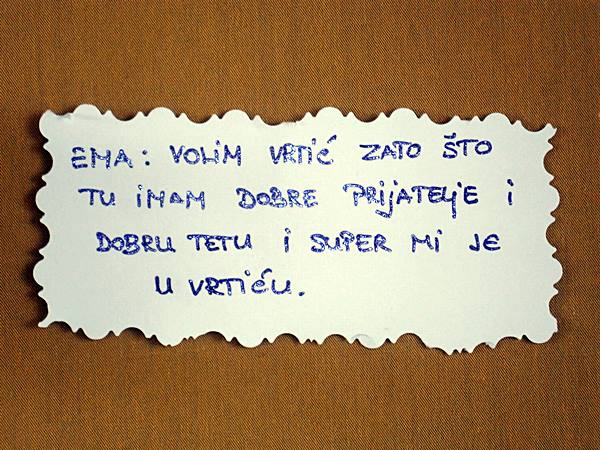 EMA: VOLIM VRTIĆ ZATO ŠTO
TU IMAM DOBRE PRIJATELJE I
DOBRU TETU I SUPER MI JE
U VRTIĆU.